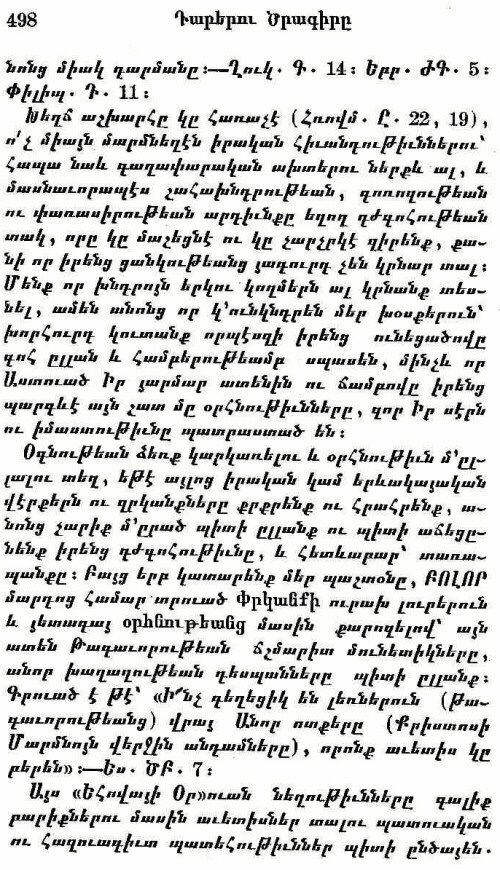 498 Դարերու Ծրագիրը
նոնց միակ դարմանը։—Ղուկ. Գ. 14։ Եբր. ԺԳ. 5։
Փիլիպ. Դ. 11։
Խեղճ աշխարհը կը հառաչէ (Հռովմ. Ը. 22, 19),
ո՛չ միայն մարմնեղէն իրական հիւանդութիւններու՝
հապա նաև գաղափարական ախտերու ներքև ալ, և
մասնաւորապէս շահախնդրութեան, գոռոզութեան
ու փառասիրութեան արդիւնքը եղող դժգոհութեան
տակ, որը կը մաշեցնէ ու կը չարչրկէ զիրենք, քա-
նի որ իրենց ցանկութեանց յագուրդ չեն կրնար տալ։
Մենք որ խնդրոյն երկու կողմերն ալ կրնանք տես-
նել, ամեն անոնց որ կ՚ունկնդրեն մեր խօսքերուն՝
խորհուրդ կուտանք որպէսզի իրենց ունեցածովը
գոհ ըլլան և համբերութեամբ սպասեն, մինչև որ
Աստուած Իր յարմար ատենին ու ճամբովը իրենց
պարգևէ այն շատ մը օրհնութիւնները, զոր Իր սէրն
ու իմաստութիւնը պատրաստած են։
Օգնութեան ձեռք կարկառելու և օրհնութիւն մ՚ըլ-
լալու տեղ, եթէ այլոց իրական կամ երևակայական
վէրքերն ու զրկանքները քրքրենք ու հրահրենք, ա-
նոնց չարիք մ՚ըրած պիտի ըլլանք ու պիտի աճեցը-
նենք իրենց դժգոհութիւնը, և հետևաբար՝ տառա-
պանքը։ Բայց երբ կատարենք մեր պաշտօնը, ԲՈԼՈՐ
մարդոց համար տրուած Փրկանքի ուրախ լուրերուն
և յետագայ օրհնութեանց մասին քարոզելով՝ այն
ատեն Թագաւորութեան ճշմարիտ մունետիկները,
անոր խաղաղութեան դեսպանները պիտի ըլլանք։
Գրուած է թէ՝ «Ի՜նչ գեղեցիկ են լեռներուն (Թա-
գաւորութեանց) վրայ Անոր ոտքերը (Քրիստոսի
Մարմնոյն վերջին անդամները), որոնք աւետիս կը
բերեն»։—Ես. ԾԲ. 7։
Այս «Եհովայի Օր»ուան նեղութիւնները գալիք
բարիքներու մասին աւետիսներ տալու պատուական
ու հազուագիւտ պատեհութիւններ պիտի ընծայեն.